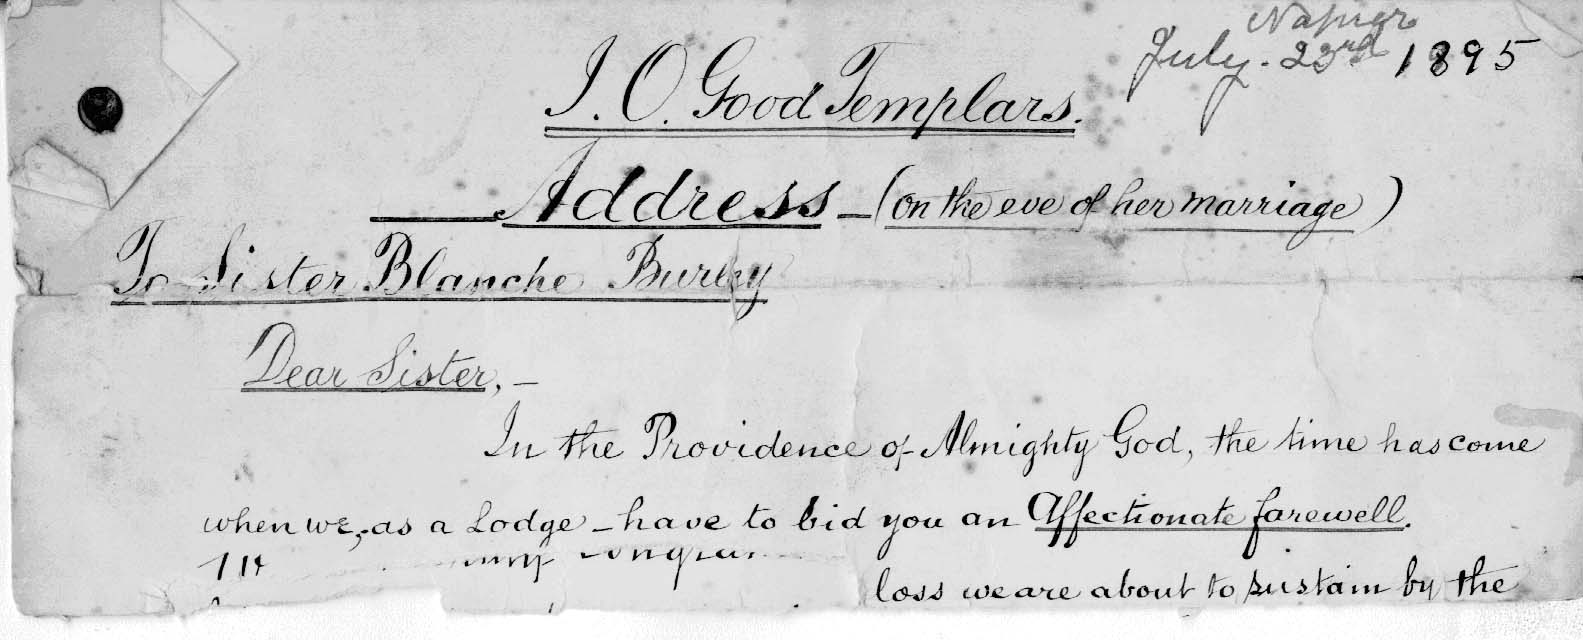 Napier
July. 23rd 1895
I. O. Good Templars.
Address - (on the eve of her marriage)
To Sister Blanche Burley
Dear Sister, -
In the Providence of Almighty God, the time has come
when we, as a Lodge - have to bid you an Affectionate farewell.
loss we are about to sustain by the